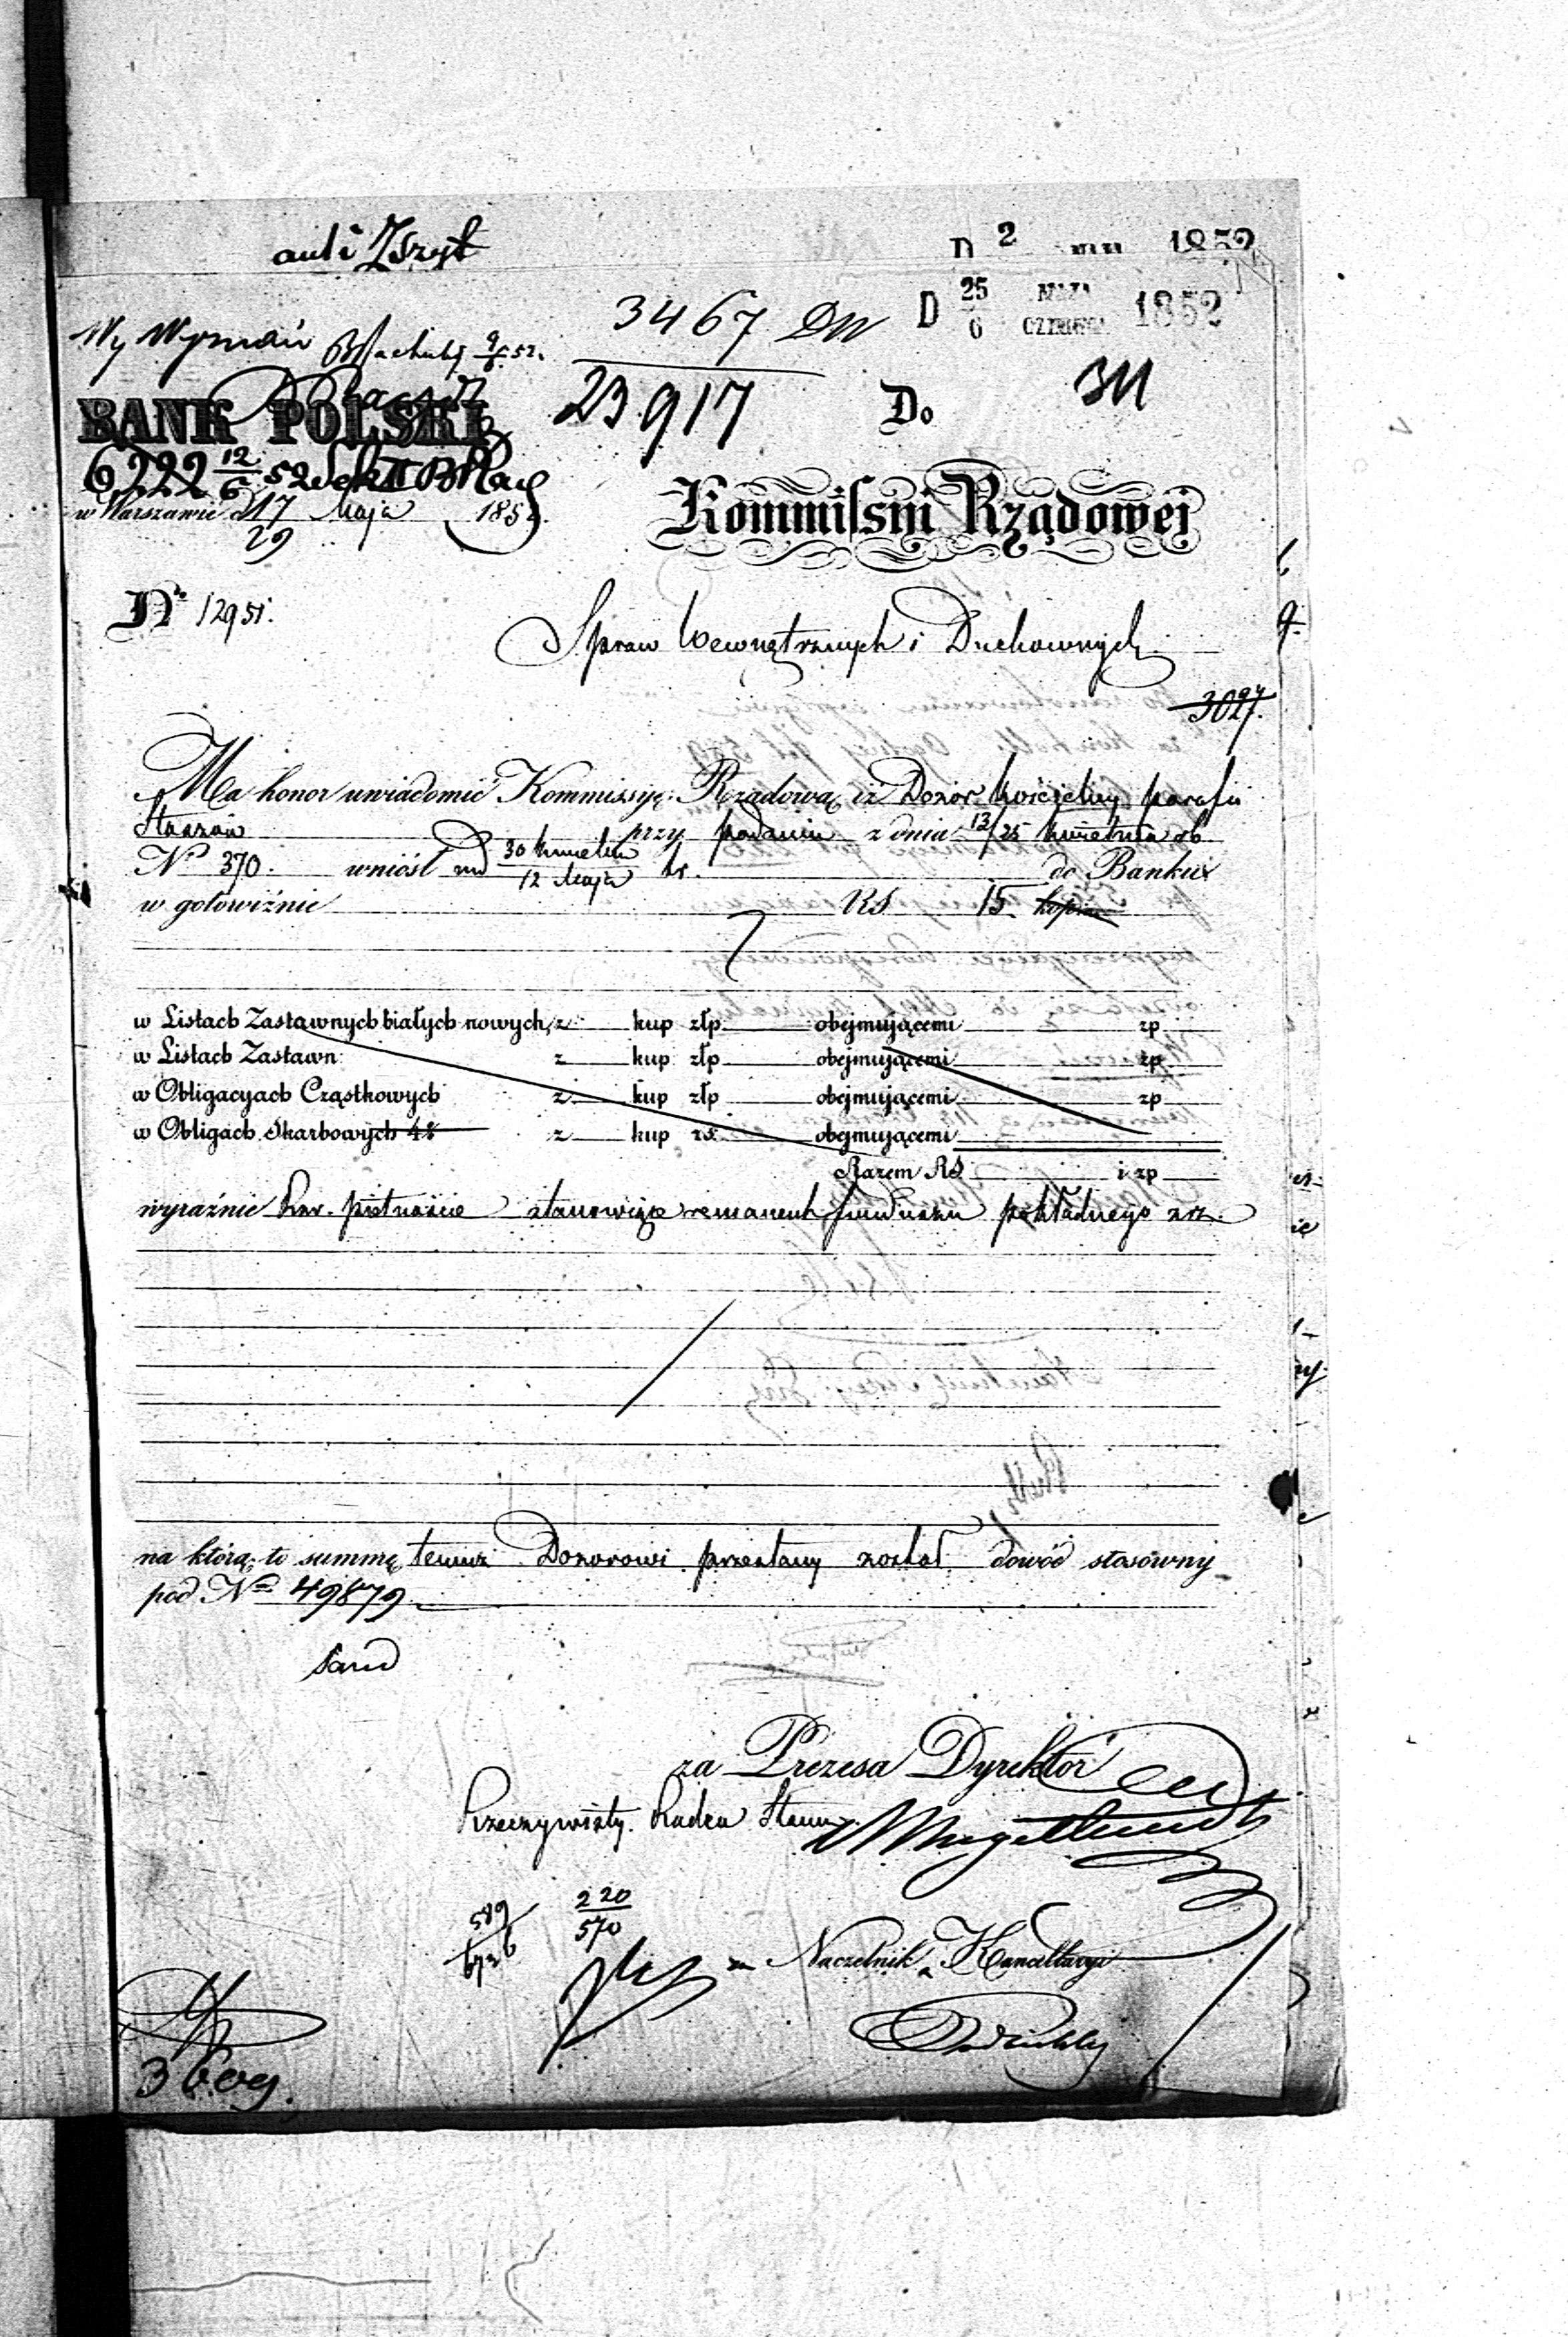 anti Zszyt
D 2 MAJA 1852
D 25/6 MAJA CZERWCA 1852
3467 DW
Wy Wyznań 9/6 52.
23917
Do
311
BANK POLSKI
6222 12/6 52 Sekt II
w Warszawie d 17/29 Maja 1852.
Kommissyi Rządowej
No 12951.
Spraw Wewnętrznych i Duchownych
3027.
Ma honor uwiadomić Kommissyę Rządową iż Dozór kościelny parafii
przy podaniu z dnia 13/25 kwietnia rb
No 370. wniósł nd 30 kwietnia/12 Maja br. do Banku
w gotowiźnie RS 15. kopiee
w Listach Zastawnych białych nowych, z kup złp obejmującemi zp
w Listach Zastawn: z kup złp obejmującemi zp
w Obligacyach Cząstkowych z kup złp obejmującemi zp
w Obligach Skarbowych 4% z kup rs. obejmującemi
Razem RS i zp
wyraźnie Rsr. piętnaście stanowiące remanent funduszu pokładnego
na którą to summę temuż Dozorowi przesłany został dowód stosowny
pod No 49879.
za Prezesa Dyrektor
Rzeczywisty Radca Stanu
589/6726
220/570
za Naczelnika Kancellaryi
3609.